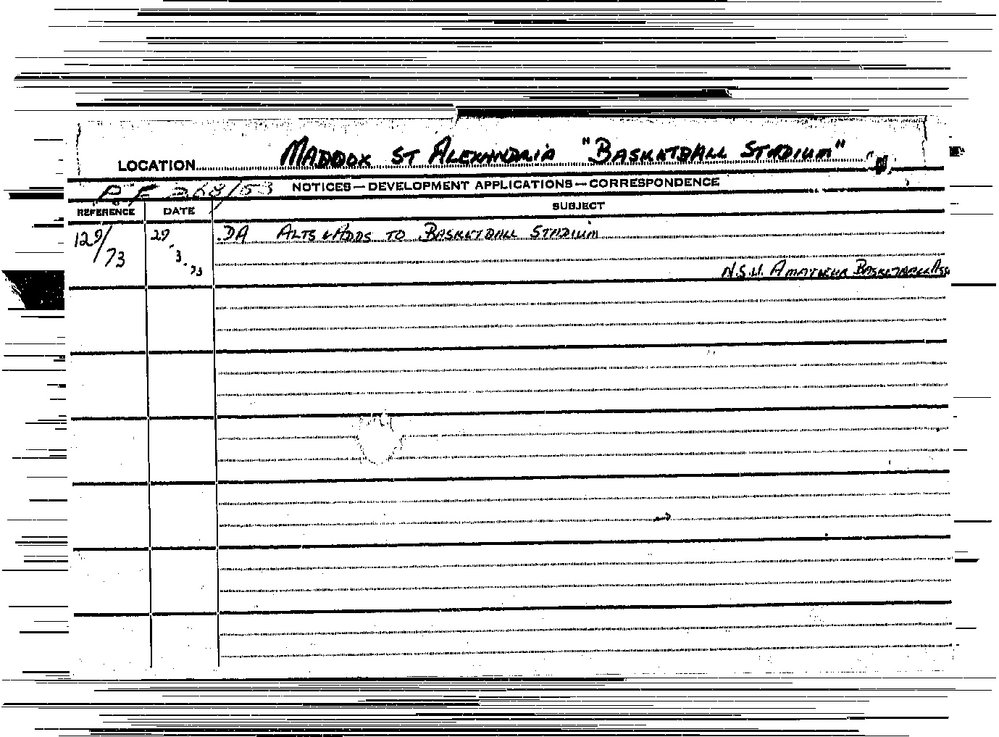 LOCATION MADDOX ST ALEXANDRIA "BASKETBALL STADIUM"
P.F 268/53 NOTICES—DEVELOPMENT APPLICATIONS—CORRESPONDENCE
REFERENCE DATE SUBJECT
129/73 29.3.73 DA ALTS & ADDS TO BASKETBALL STADIUM
N.S.W. AMATEUR BASKETBALL Ass